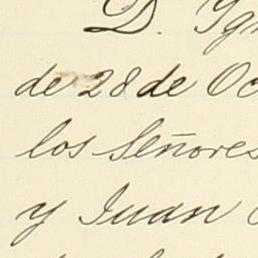 D. Ig
de 28 de Oc
los Señores
y Juan